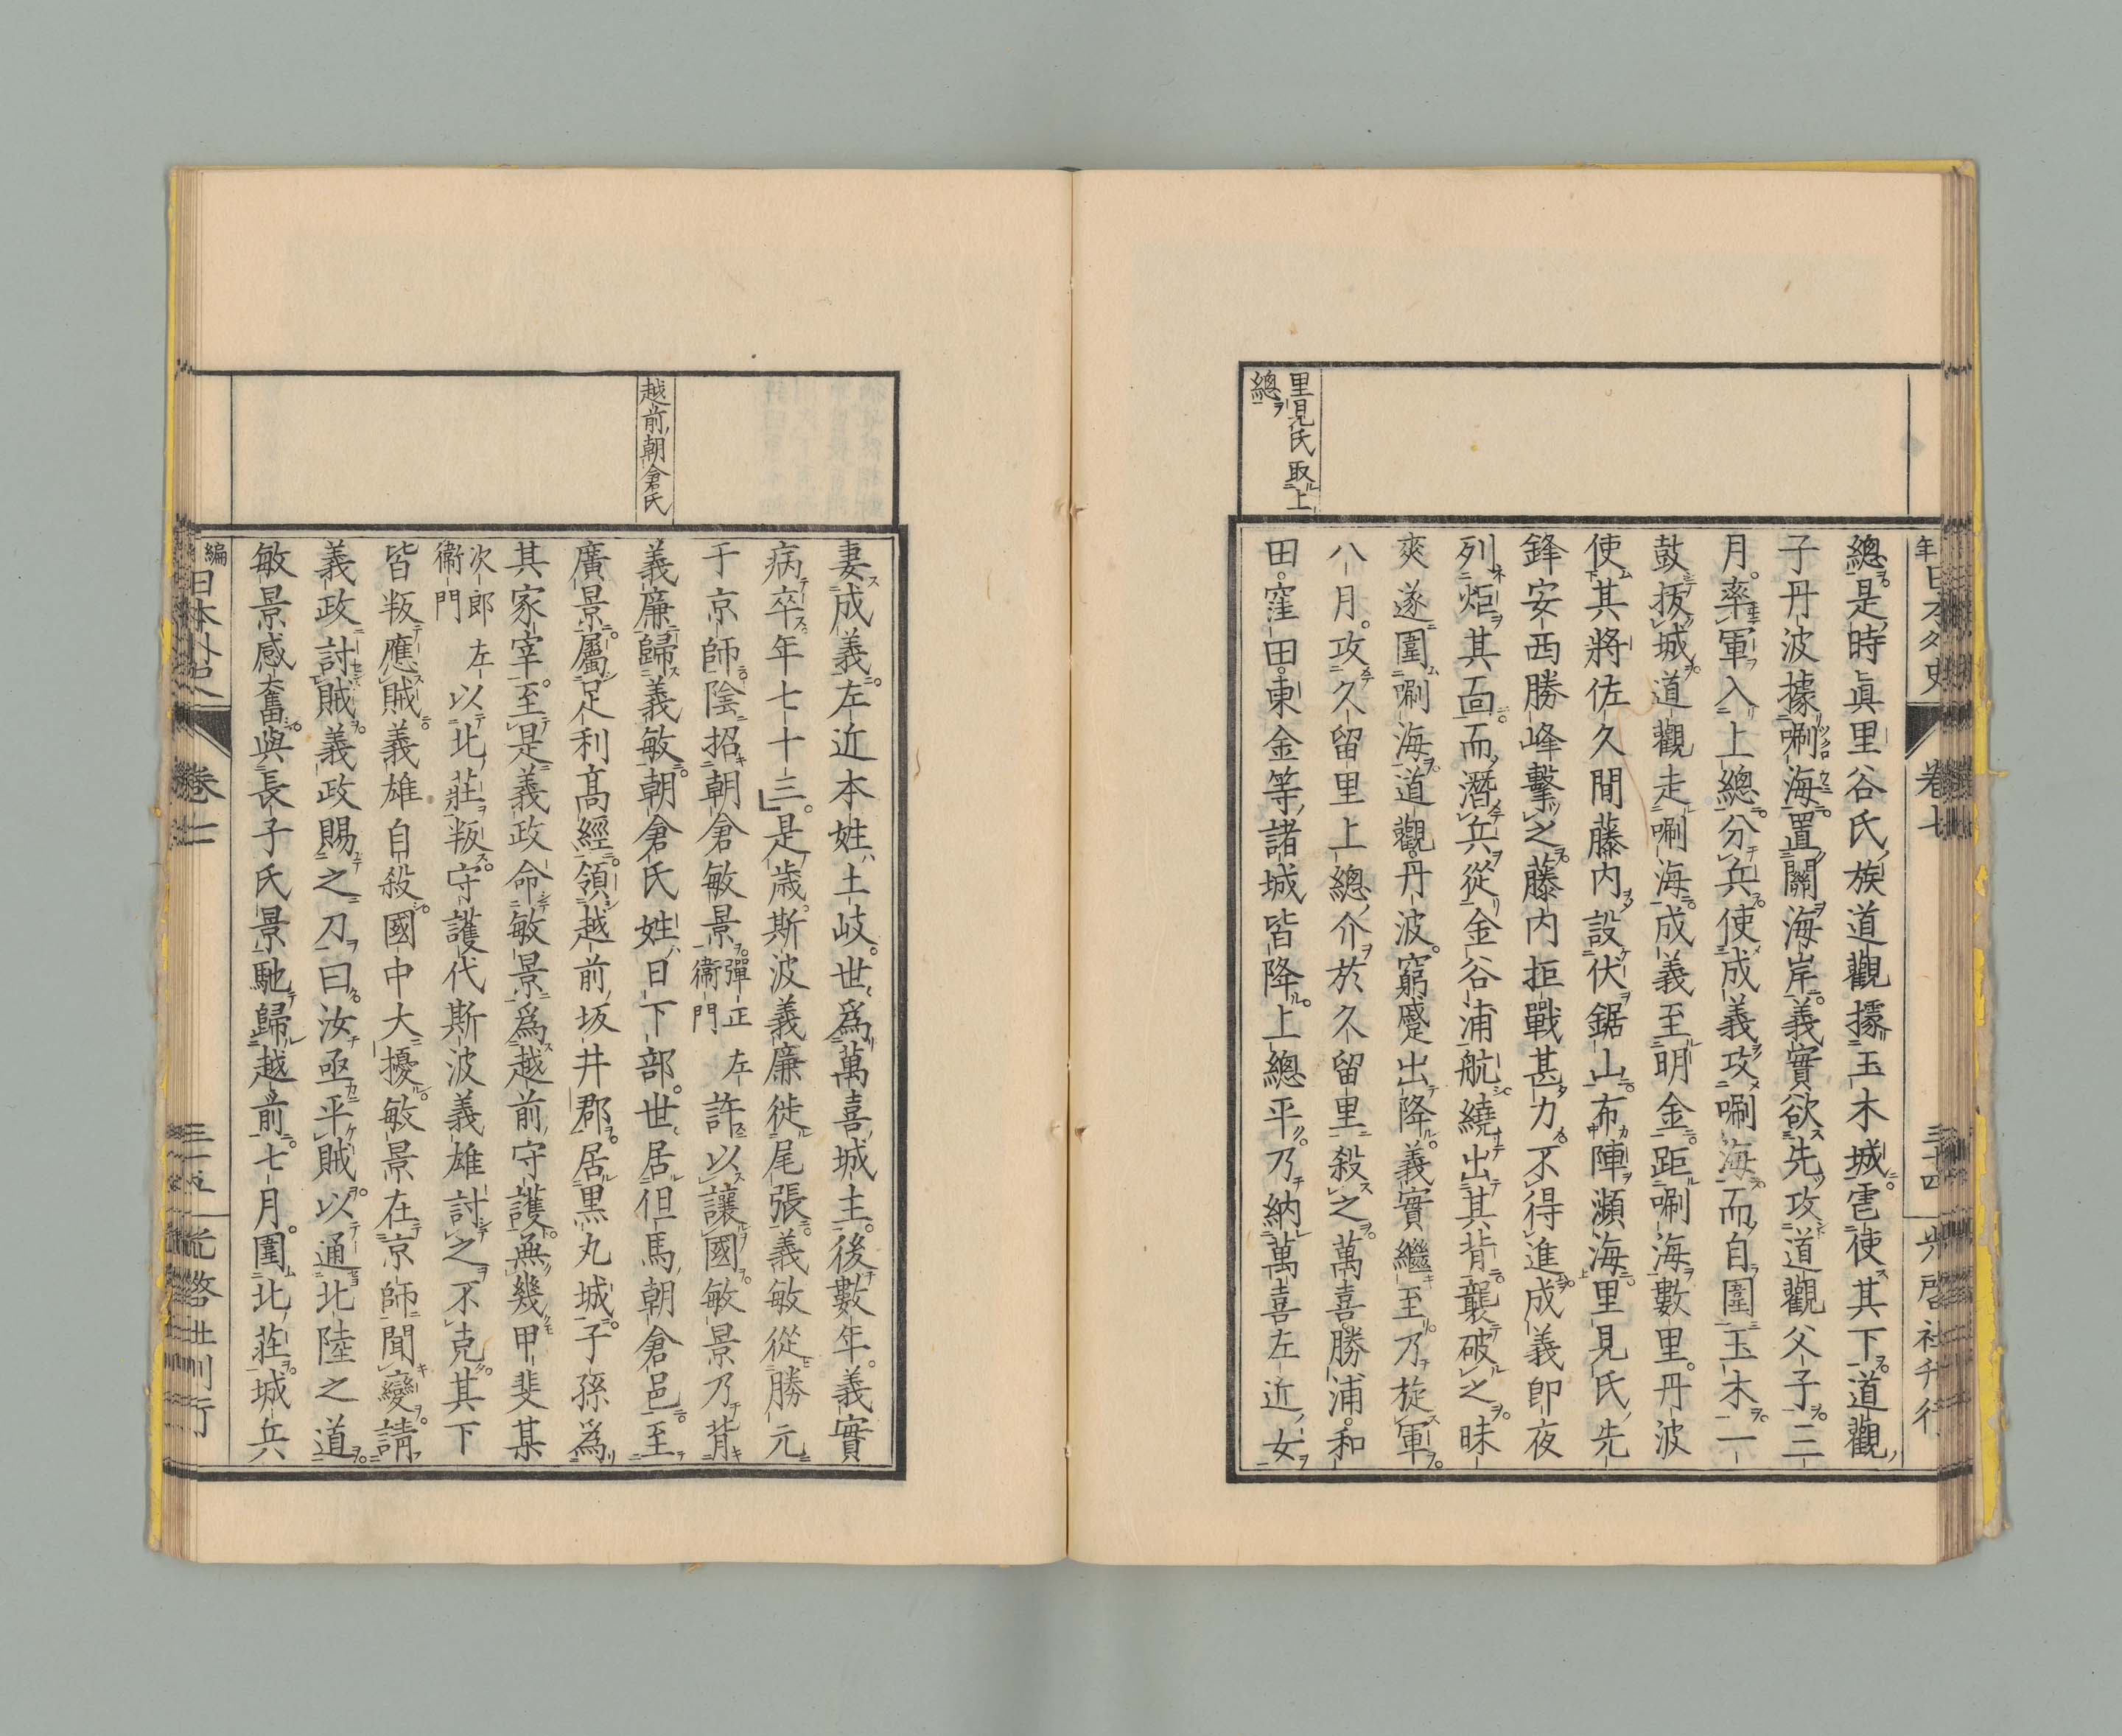 里見氏取上
總
總是時眞里谷氏族道觀據玉木城雹使其下道觀
子丹波據唰海置關海岸義實欲先攻道觀父子三
月率軍入上總分兵使成義攻唰海而自圍玉木一
鼓拔城道觀走唰海成義至明金距唰海數里丹波
使其將佐久間藤内設伏鋸山布陣瀕海里見氏先
鋒安西勝峰擊之藤内拒戰甚力不得進成義卽夜
列炬其面而潛兵從金谷浦航繞出其背襲破之昧
爽遂圍唰海道觀丹波窮蹙出降義實繼至乃旋軍
八月攻久留里上總介於久留里殺之萬喜勝浦和
田窪田東金等諸城皆降上總平乃納萬喜左近女
越前朝倉氏
妻成義左近本姓土岐世爲萬喜城主後數年義實
病卒年七十三是歳斯波義廉徙尾張義敏從勝元
于京師陰招朝倉敏景彈正左衞門許以讓國敏景乃背
義廉歸義敏朝倉氏姓日下部世居但馬朝倉邑至
廣景屬足利高經領越前坂井郡居黒丸城子孫爲
其家宰至是義政命敏景爲越前守護無幾甲斐某
次郎左衞門以北莊叛守護代斯波義雄討之不克其下
皆叛應賊義雄自殺國中大擾敏景在京師聞變請
義政討賊義政賜之刀曰汝亟平賊以通北陸之道
敏景感奮與長子氏景馳歸越前七月圍北莊城兵